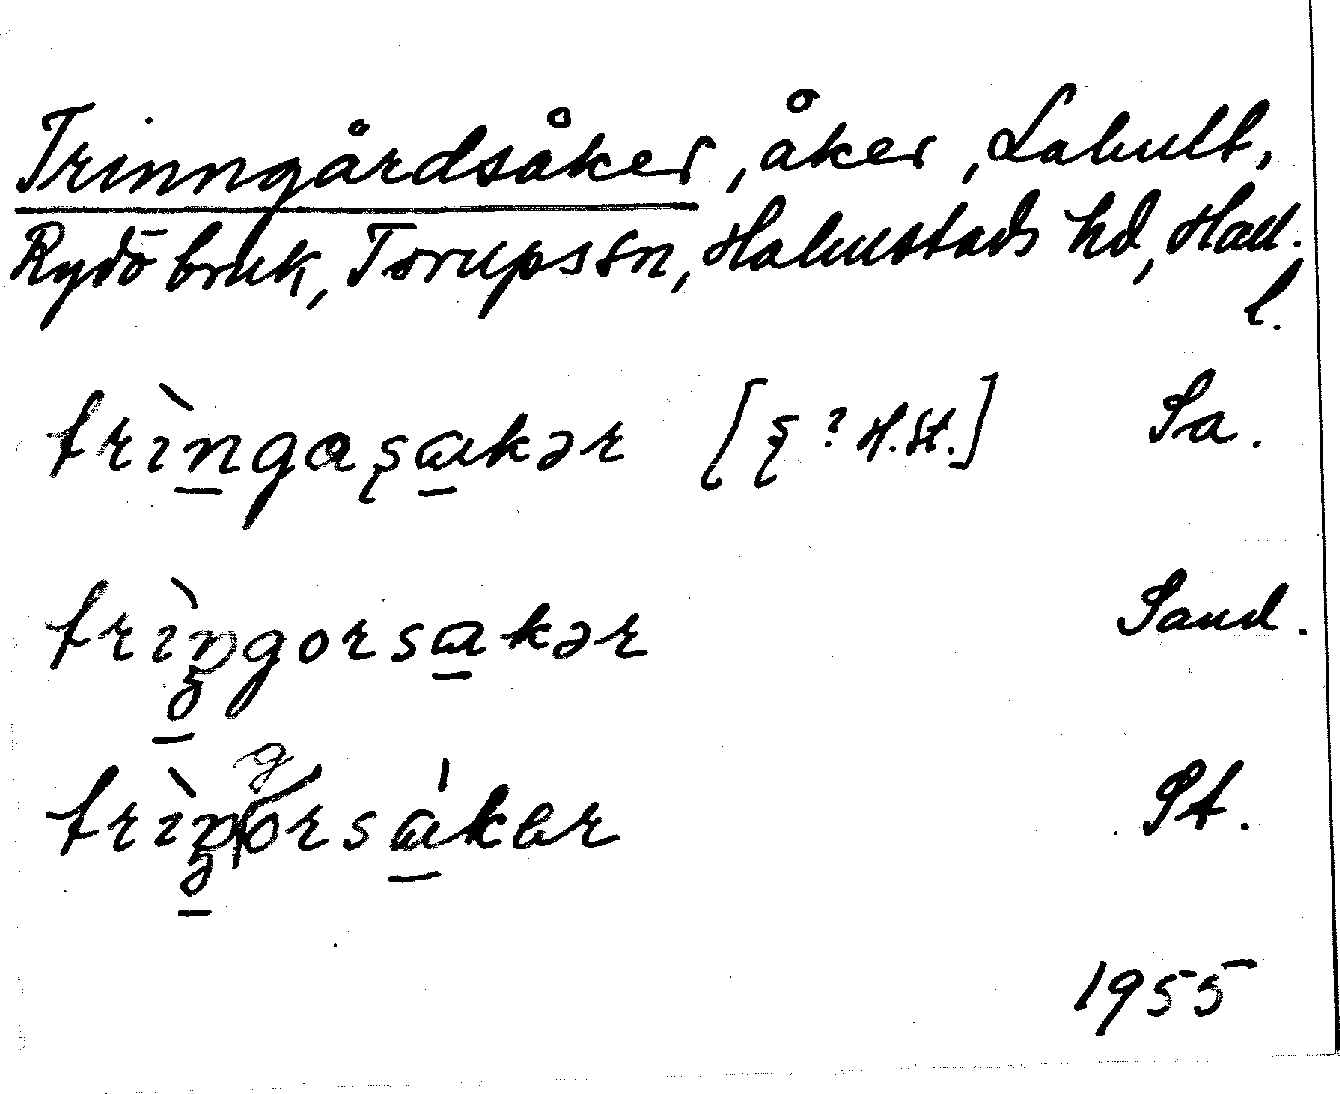 Trinngårdsåker, åker, Lahult,
Rydö bruk, Torups sn, Halmstads hd, Hall.
l.
trìngaʂɑkər [ʂ? H.St.] Sa.
trìŋgorsɑkər Sand.
trìŋgorsɑ́kər St.
1955